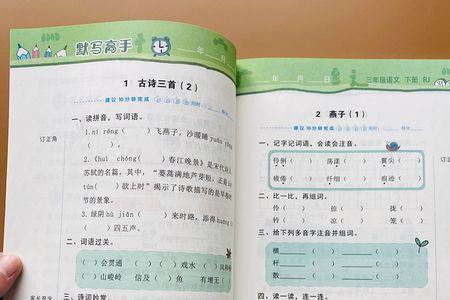 默写高手
年 月
1 古诗三首（2）
建议 10分钟完成
一、读拼音，写词语。
订正角
1. ní róng（ ）飞燕子，沙暖睡 yuān yāng
2.（huì chóng）（ ）春江晓景》是宋代诗人
苏轼的名篇，其中，“蒌蒿满地芦芽短，正是
tún（ ）欲上时”揭示了诗歌描写的是早春时
节的景象。
3. 绿阴 bù jiǎn（ ）来时路，添得 huáng
（ ）四五声。
二、词语过关。
（ ）会贯通 （ ）（ ）戏水 （ ）
（ ）山峻岭 信及（ ）鱼 有增无（ ）
三、诗词妙赏。
家长签字
年 月 日
三年级语文 下册 RJ
2 燕子（1）
建议 10分钟完成
一、记字记词语，会读会注音。
伶俐（ ） 荡漾（ ） 翼尖（ ）
疲倦（ ） 纤细（ ） 痕迹（ ）
二、比一比，再组词。
伶（ ） 掠（ ） 拢（ ）
铃（ ） 凉（ ） 笼（ ）
三、给下列多音字注音并组词。
横
杆
散
四、读一读，连一连。